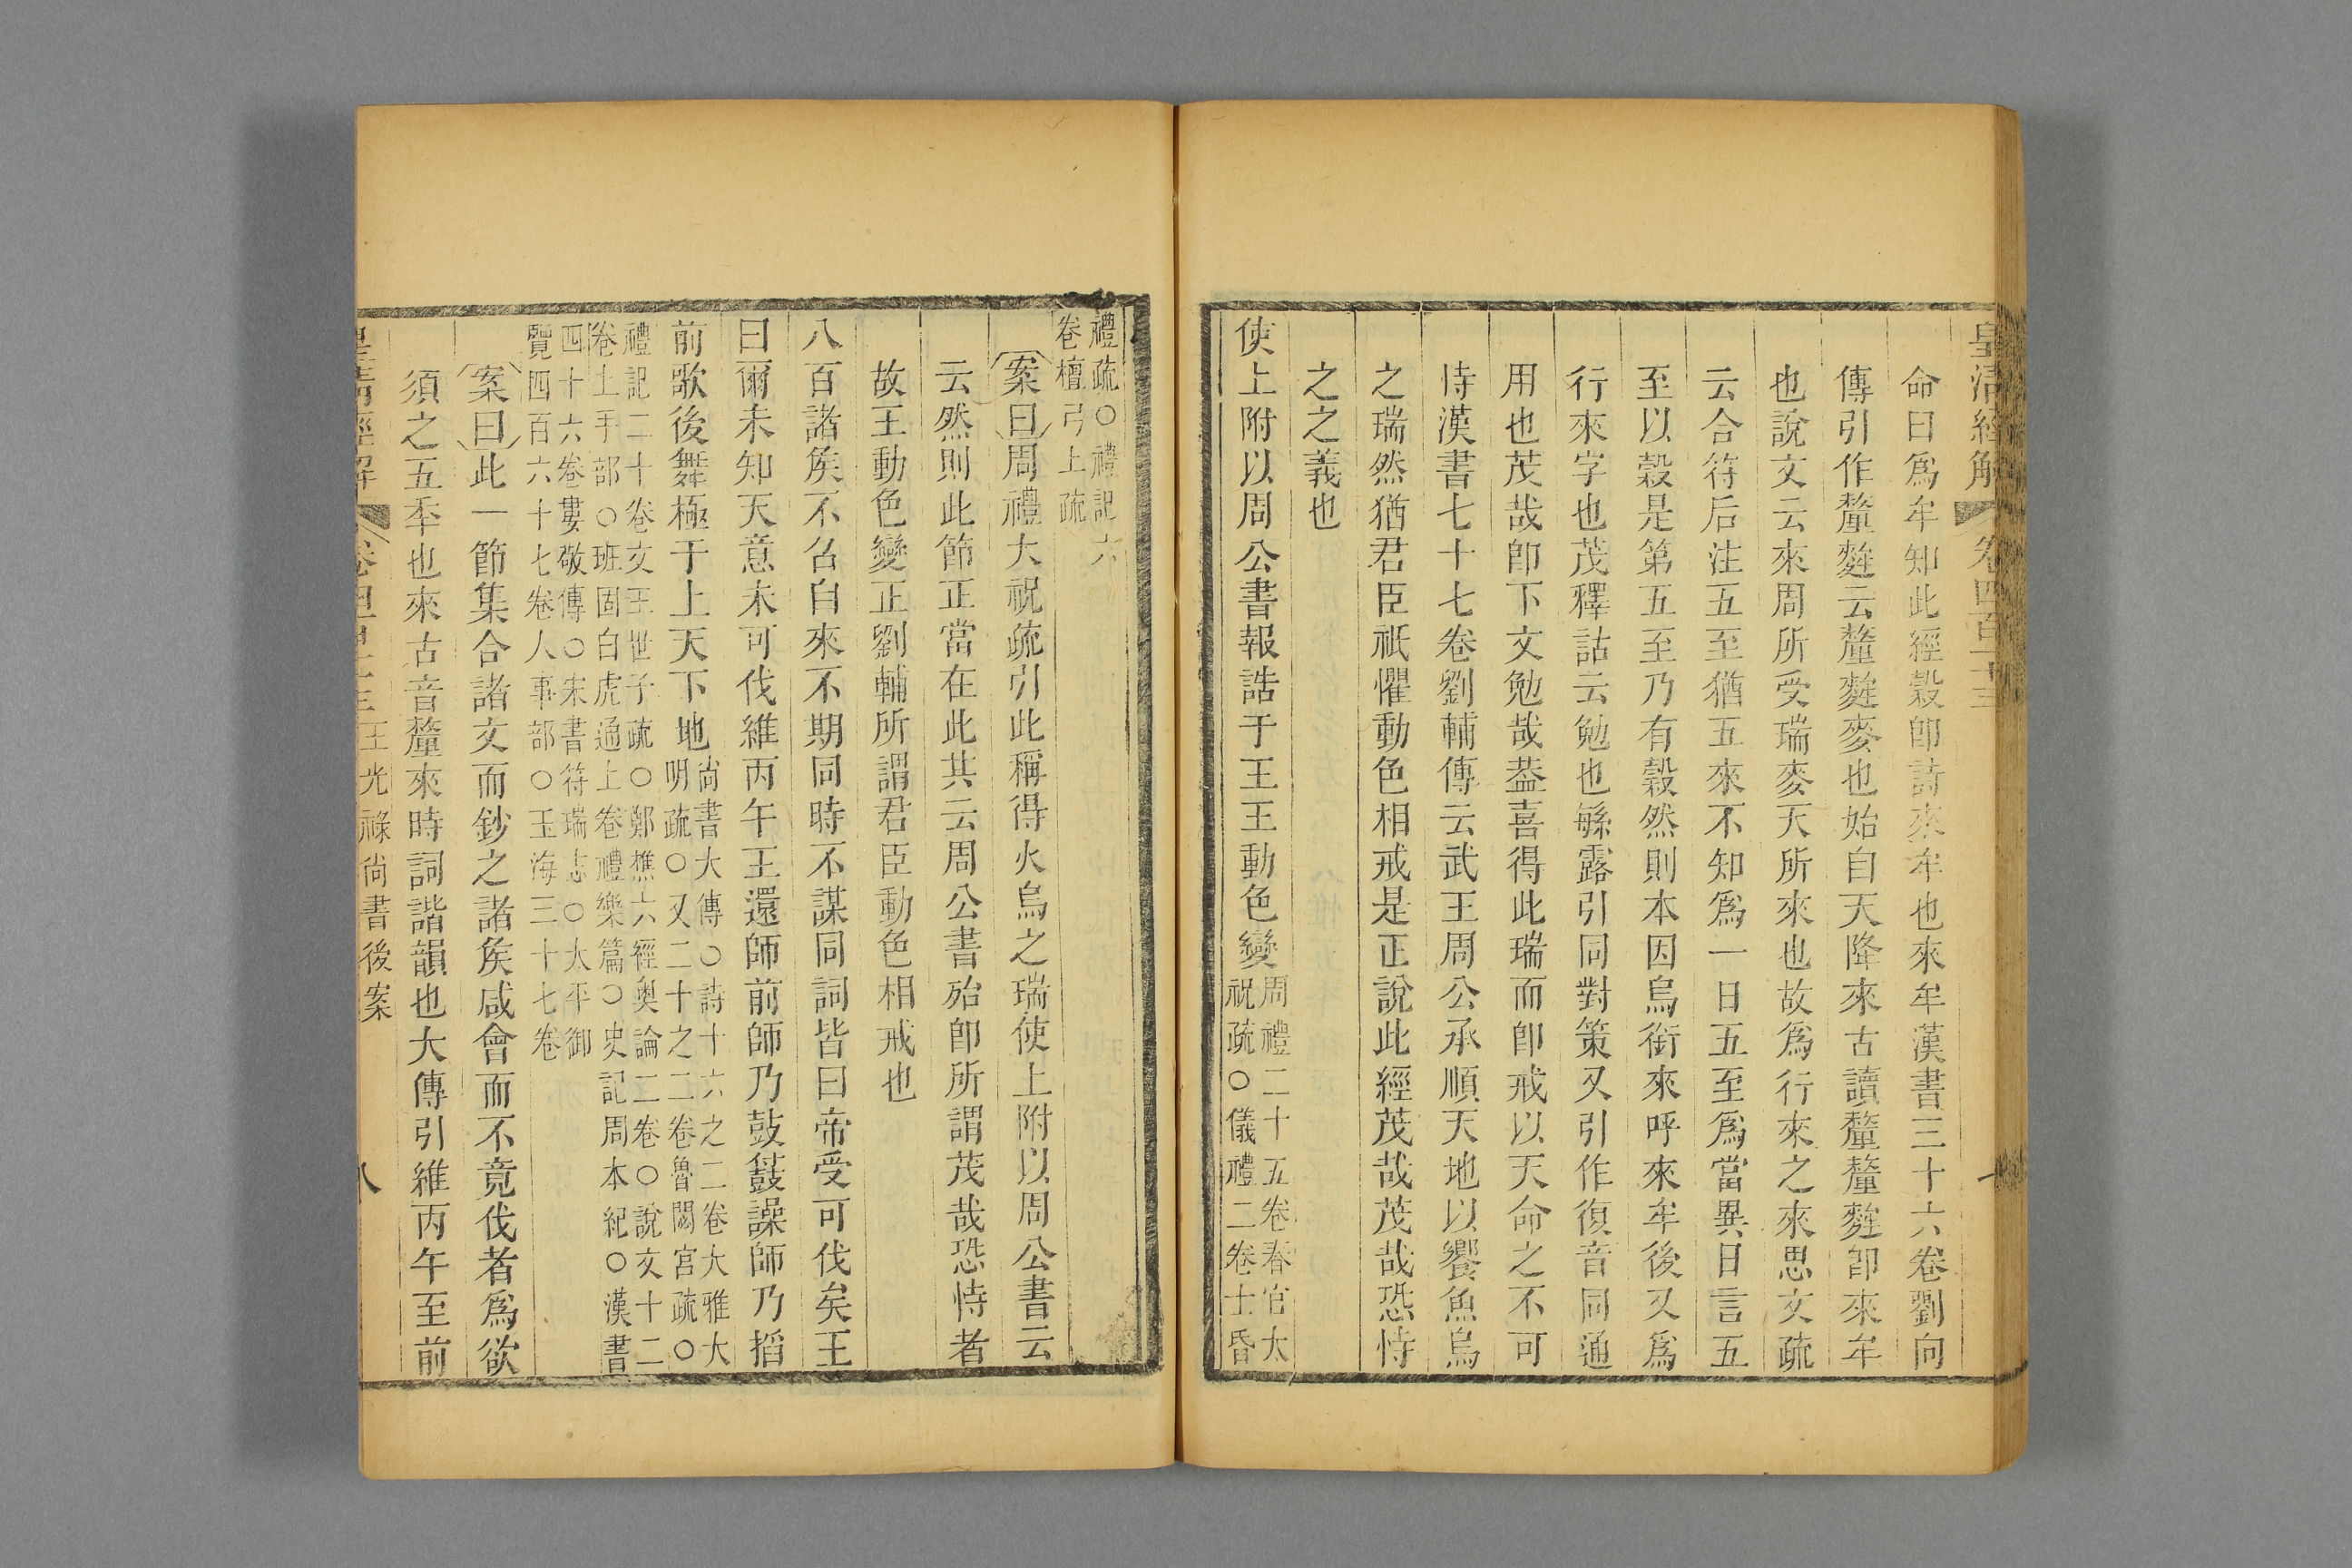 皇清經解 卷四百二十三
命曰爲牟知此經穀卽詩來牟也來牟漢書三十六卷劉向
傳引作釐麰云釐麰麥也始自天降來古讀釐釐麰卽來牟
也說文云來周所受瑞麥天所來也故爲行來之來思文疏
云合符后注五至猶五來不知爲一日五至爲當異日言五
至以穀是第五至乃有穀然則本因烏銜來呼來牟後又爲
行來字也茂釋詁云勉也緐露引同對策又引作復音同通
用也茂哉卽下文勉哉葢喜得此瑞而卽戒以天命之不可
恃漢書七十七卷劉輔傳云武王周公承順天地以饗魚烏
之瑞然猶君臣祇懼動色相戒是正說此經茂哉茂哉恐恃
之之義也
使上附以周公書報誥于王王動色變周禮二十五卷春官大
祝疏○儀禮二卷士昏
禮疏○禮記六
卷檀弓上疏
案曰周禮大祝疏引此稱得火烏之瑞使上附以周公書云
云然則此節正當在此其云周公書殆卽所謂茂哉恐恃者
故王動色變正劉輔所謂君臣動色相戒也
八百諸矦不召自來不期同時不謀同詞皆曰帝受可伐矣王
曰爾未知天意未可伐維丙午王還師前師乃鼓鼜譟師乃搯
前歌後舞極于上天下地尚書大傳○詩十六之二卷大雅大
明疏○又二十之二卷魯閟宮疏○
禮記二十卷文王世子疏○鄭樵六經奧論二卷○說文十二
卷上手部○班固白虎通上卷禮樂篇○史記周本紀○漢書
四十六卷婁敬傳○宋書符瑞志○太平御
覽四百六十七卷人事部○玉海三十七卷
案曰此一節集合諸文而鈔之諸矦咸會而不竟伐者爲欲
須之五秊也來古音釐來時詞諧韻也大傳引維丙午至前
皇淸經解 卷四百二十三 王光祿尚書後案 八